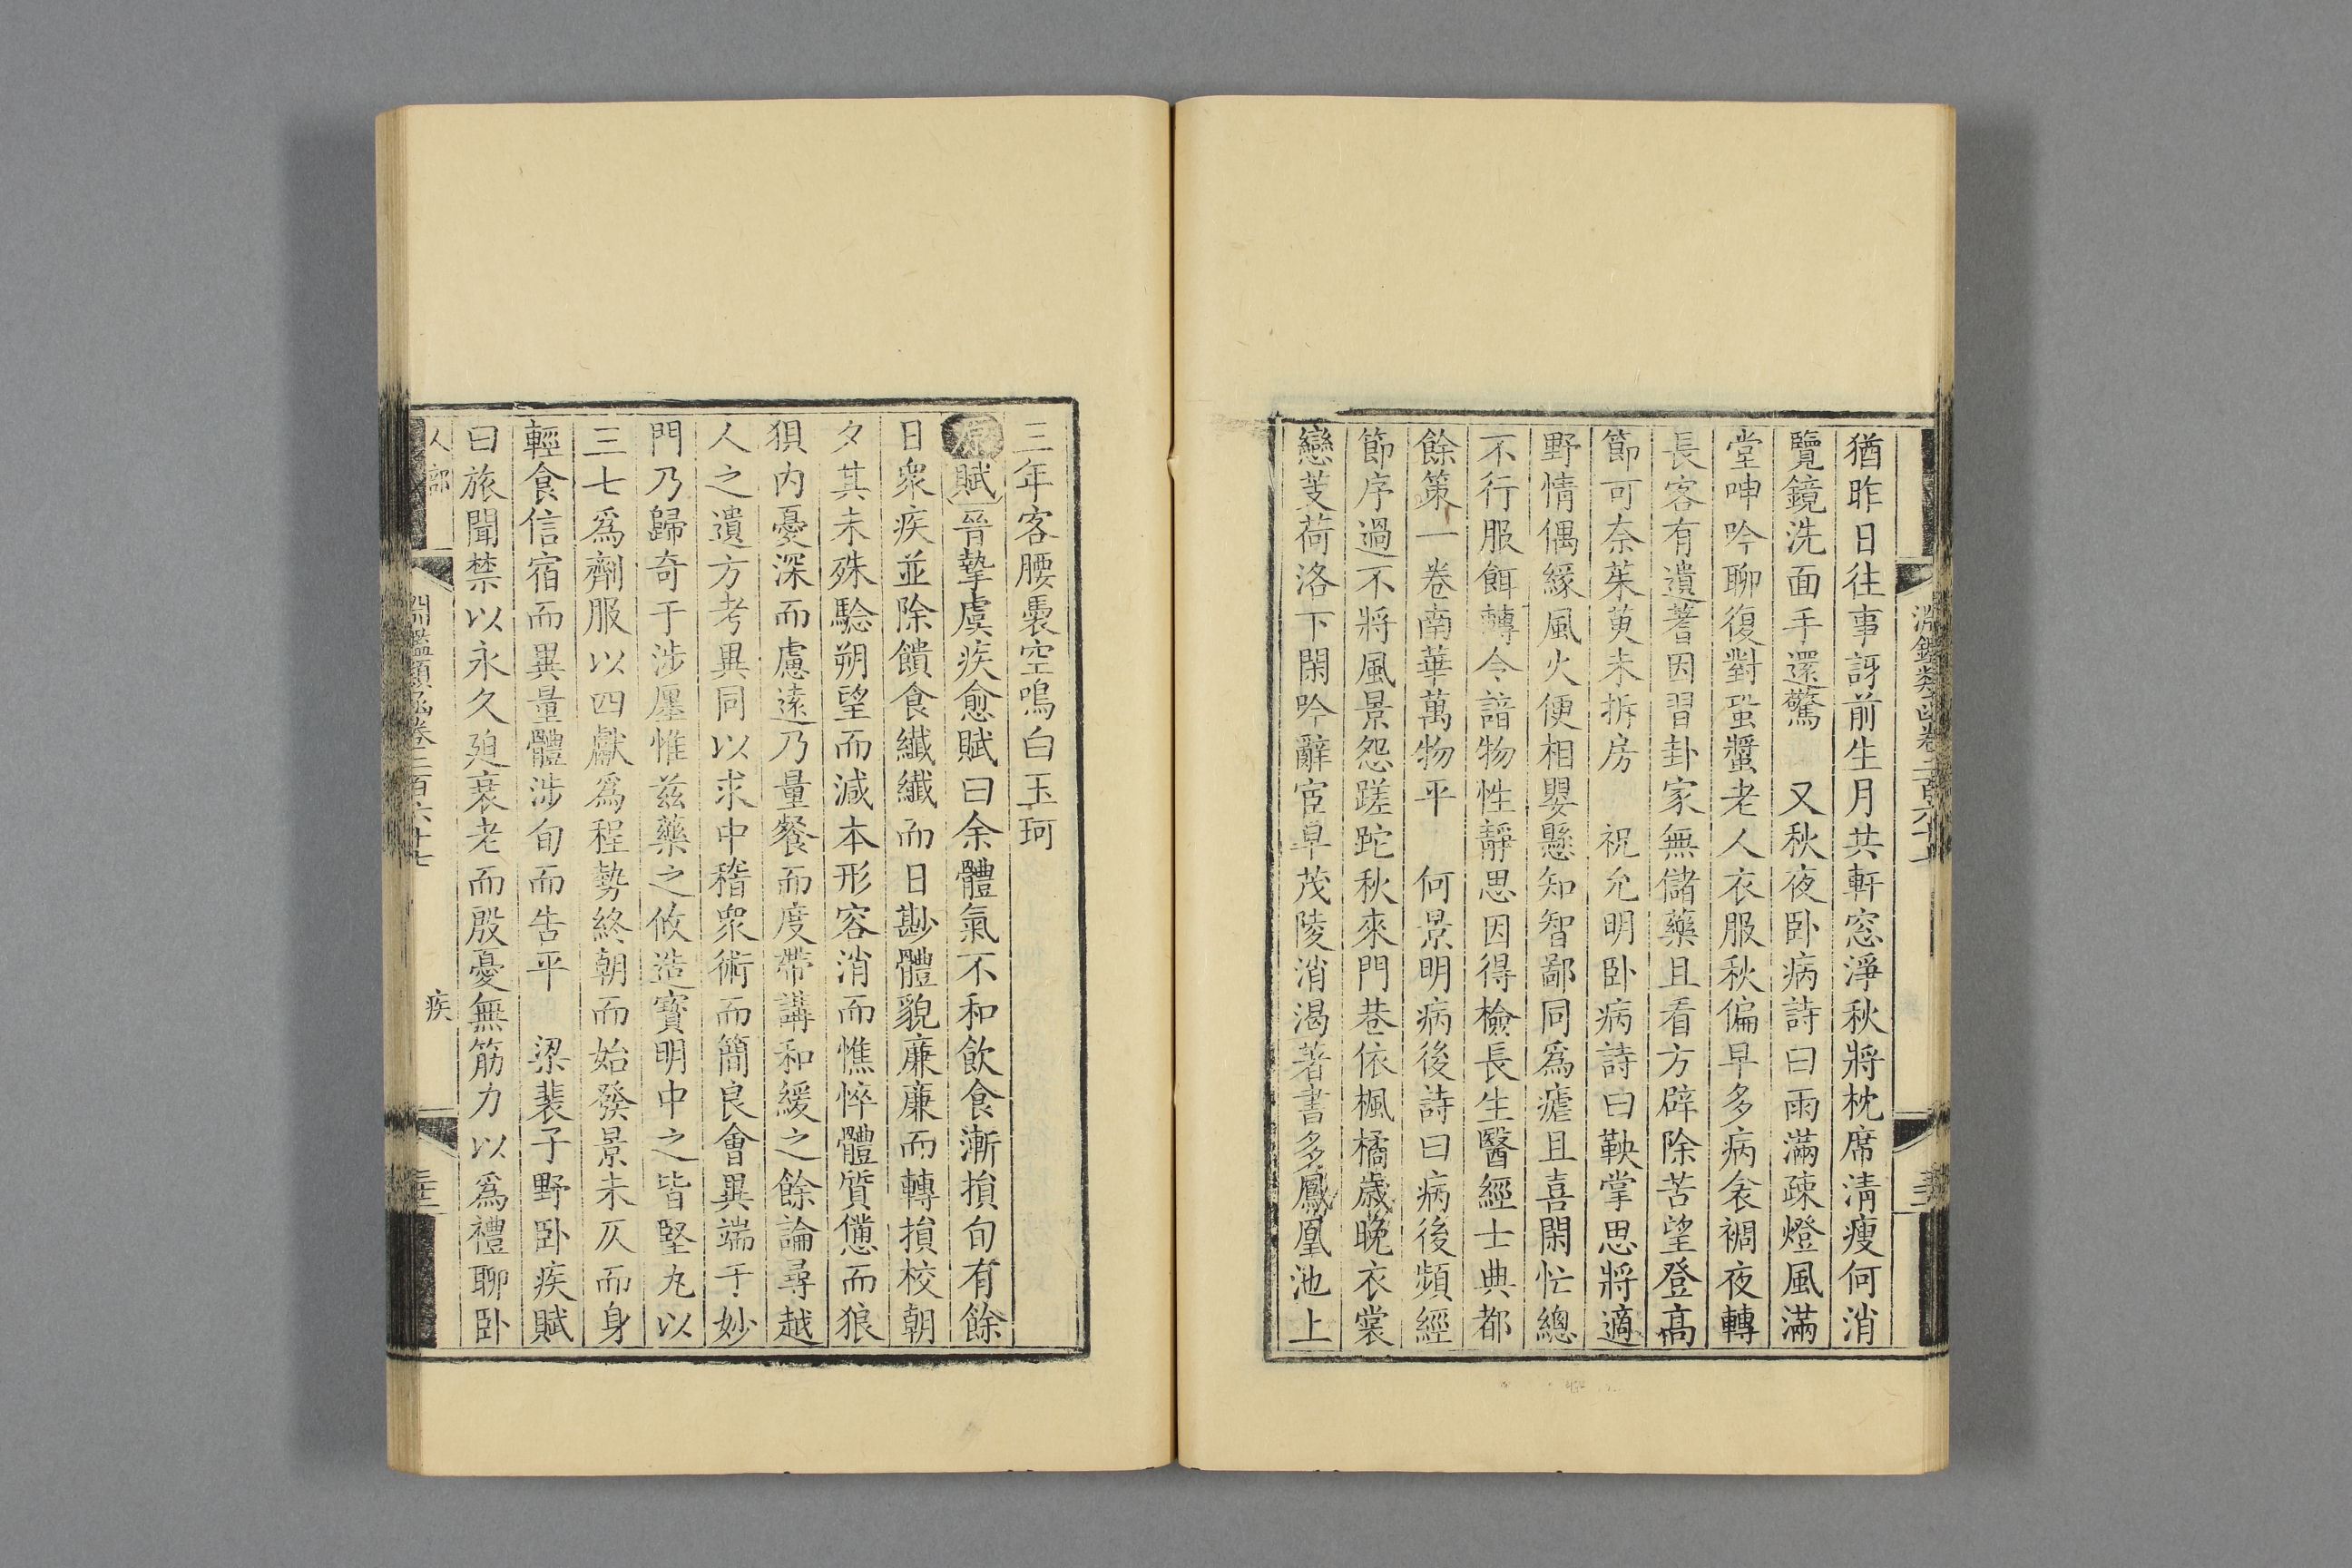 猶昨日往事訝前生月共軒窓淨秋將枕席清瘦何消
覽鏡洗面手還驚　又秋夜卧病詩曰雨滿疎燈風滿
堂呻吟聊復對蛩螿老人衣服秋偏早多病衾裯夜轉
長客有遺蓍因習卦家無儲藥且看方辟除苦望登高
節可奈茱萸未拆房　祝允明卧病詩曰鞅掌思將適
野情偶緣風火便相嬰懸知智鄙同爲瘧且喜閑忙總
不行服餌轉令諳物性靜思因得檢長生醫經士典都
餘策一卷南華萬物平　何景明病後詩曰病後頻經
節序過不將風景怨蹉跎秋來門巷依楓橘歲晚衣裳
戀芰荷洛下閑吟辭宦早茂陵消渴著書多鳳凰池上
淵鑑類函卷二百六十七
三年客腰褭空鳴白玉珂
原賦晉摯虞疾愈賦曰余體氣不和飲食漸損旬有餘
日衆疾並除饋食纖纖而日尠體貌廉廉而轉損校朝
夕其未殊驗朔望而減本形容消而憔悴體質憊而狼
狽内憂深而慮遠乃量餐而度帶講和緩之餘論尋越
人之遺方考異同以求中稽衆術而簡良會異端于妙
門乃歸奇于涉㕓惟兹藥之攸造寶明中之皆堅丸以
三七爲劑服以四獻爲程勢終朝而始發景未仄而身
輕食信宿而異量體涉旬而告平　梁裴子野卧疾賦
曰旅聞禁以永久廹衰老而殷憂無筋力以爲禮聊卧
人部
淵鑑類函卷二百六十七
疾